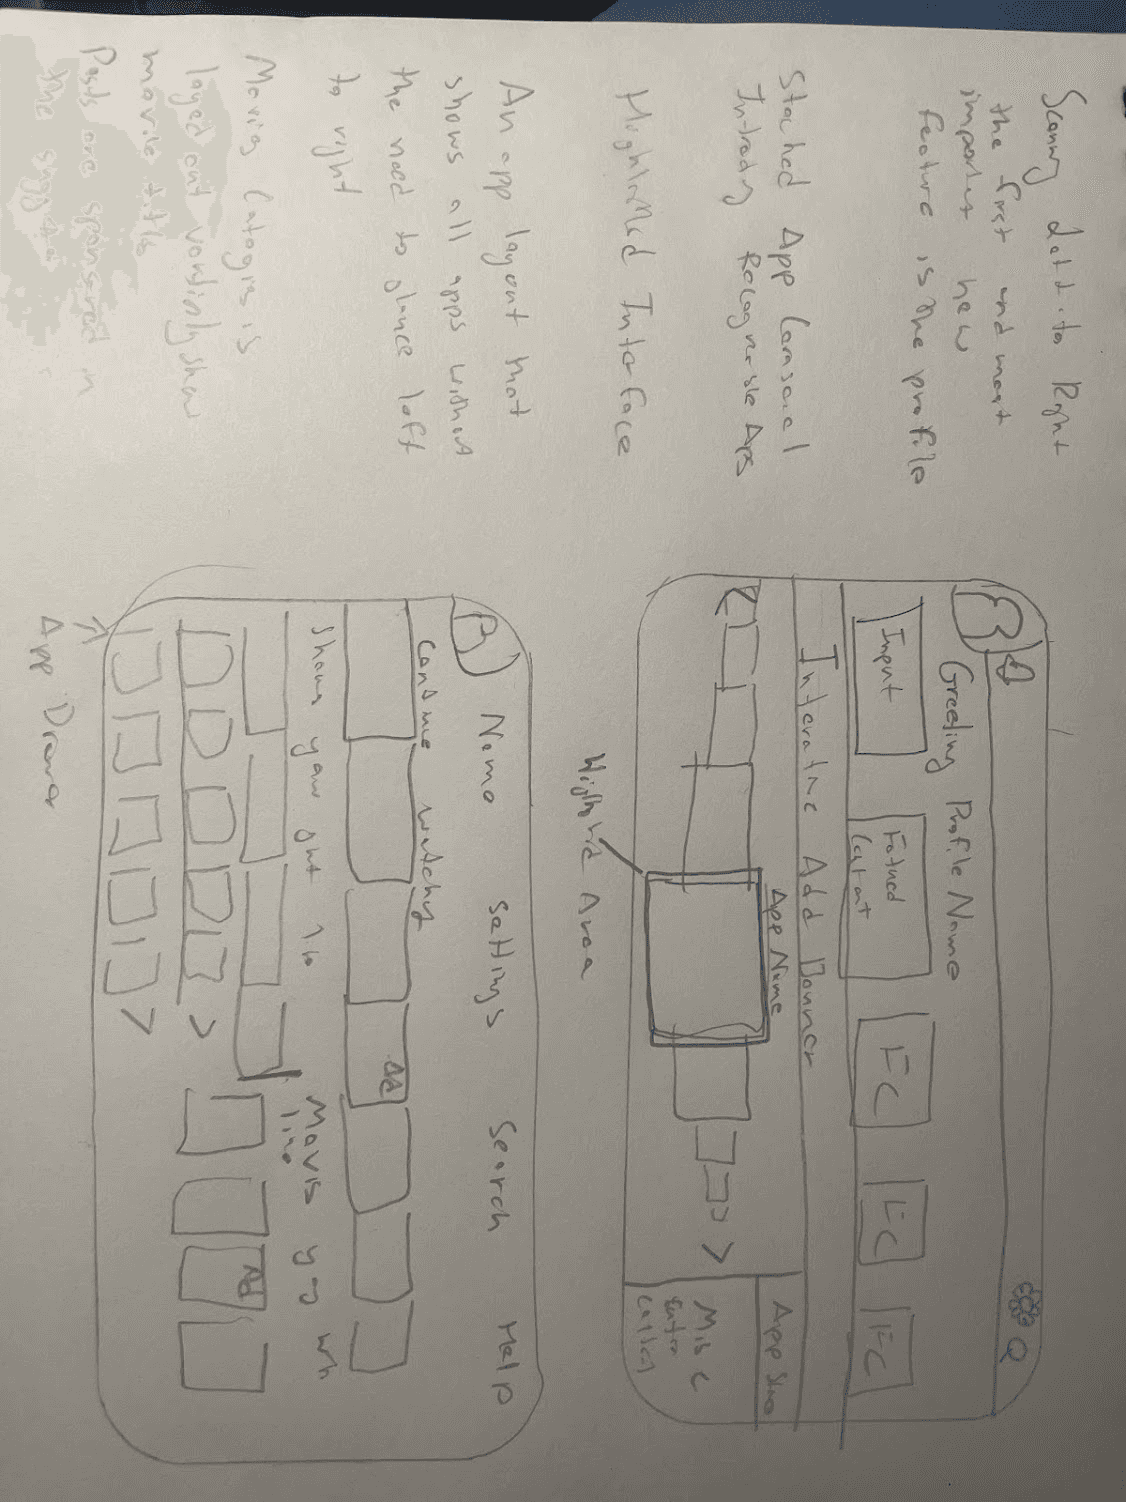 Scanny Left to Right
the first and most
important new
feature is the profile
Stacked App Carousel
Introdg Recognizable Aps
Highlihted Interface
An app layout that
shows all apps without
the need to glance left
to right
Movies Catogies is
layed out vertiply show
movie title
Posts are sponsered in
the
Greeting Profile Name
Input
Fatued
FC
FC
FC
Interative Add Banner
App Name
App Store
Misc
Highlhd Area
Name
Settings
Search
Help
Contnue watchg
Ad
Shows you
Movis
Ad
App Drawer